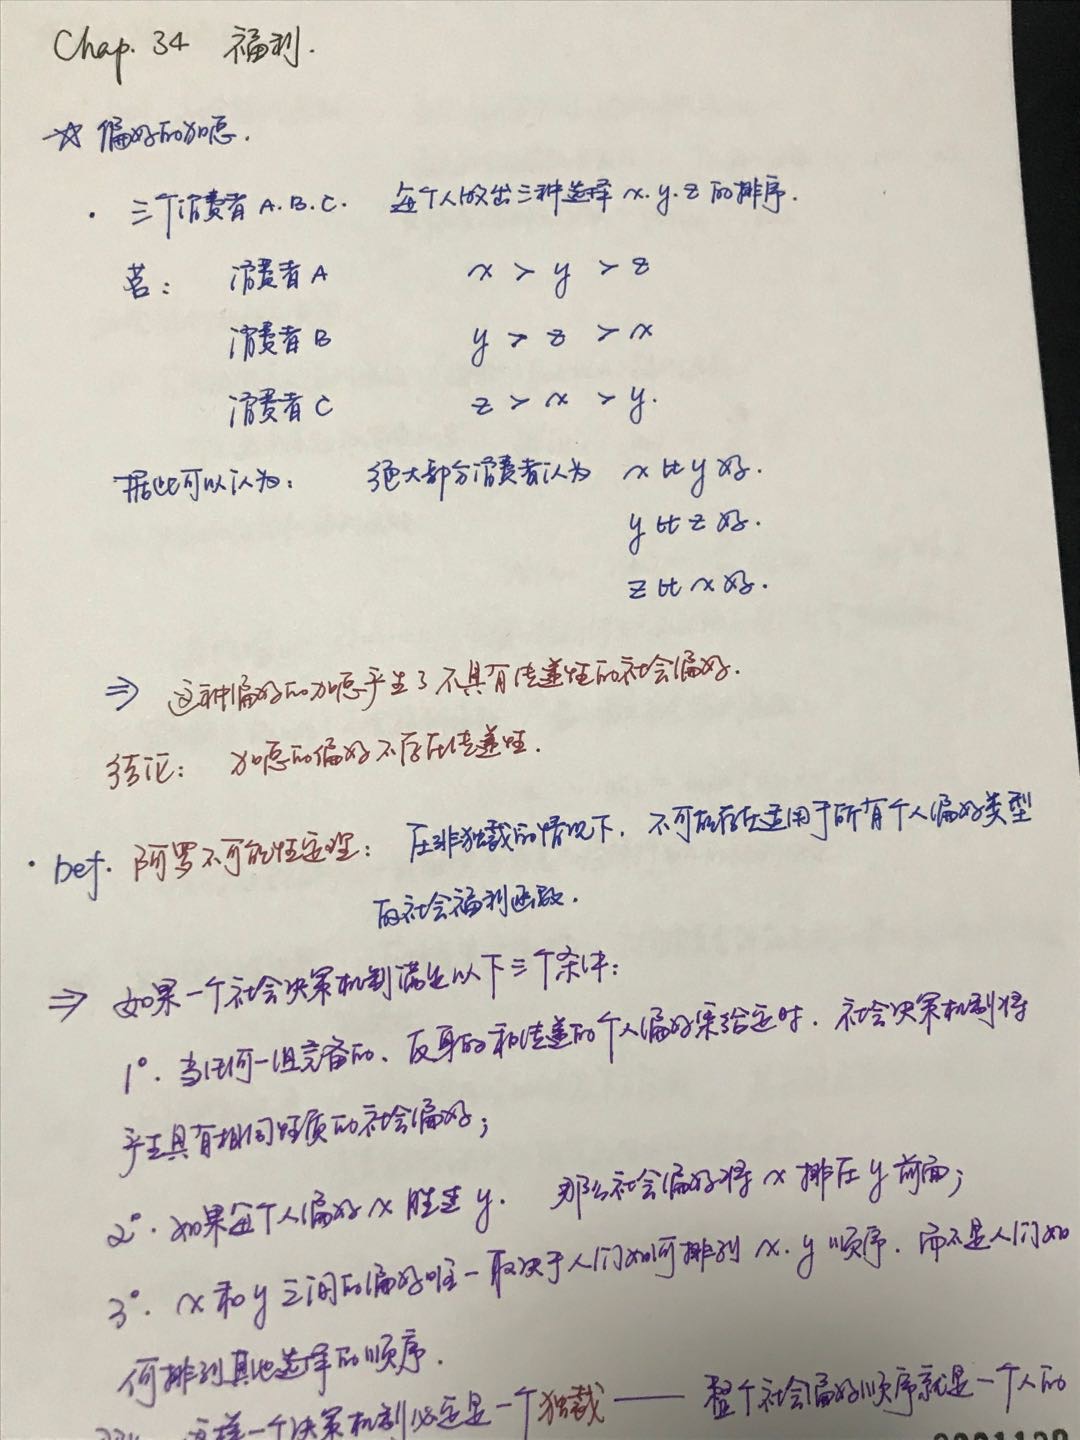 Chap. 34 福利.
☆ 偏好的加总.
· 三个消费者 A.B.C. 每个人做出三种选择 x.y.z 的排序.
若: 消费者A x > y > z
消费者B y > z > x
消费者C z > x > y.
据此可以认为: 绝大部分消费者认为 x比y好.
y比z好.
z比x好.
⇒ 这种偏好的加总产生了不具有传递性的社会偏好.
结论: 加总的偏好不存在传递性.
· Def. 阿罗不可能性定理: 在非独裁的情况下, 不可能存在适用于所有个人偏好类型
的社会福利函数.
⇒ 如果一个社会决策机制满足以下三个条件:
1°. 当任何一组完备的、反身的和传递的个人偏好集给定时, 社会决策机制将
产生具有相同性质的社会偏好;
2°. 如果每个人偏好x胜过y. 那么社会偏好将x排在y前面;
3°. x和y之间的偏好唯一取决于人们如何排列x.y顺序, 而不是人们如
何排列其他选择的顺序.
这样一个决策机制必定是一个独裁 —— 整个社会偏好顺序就是一个人的